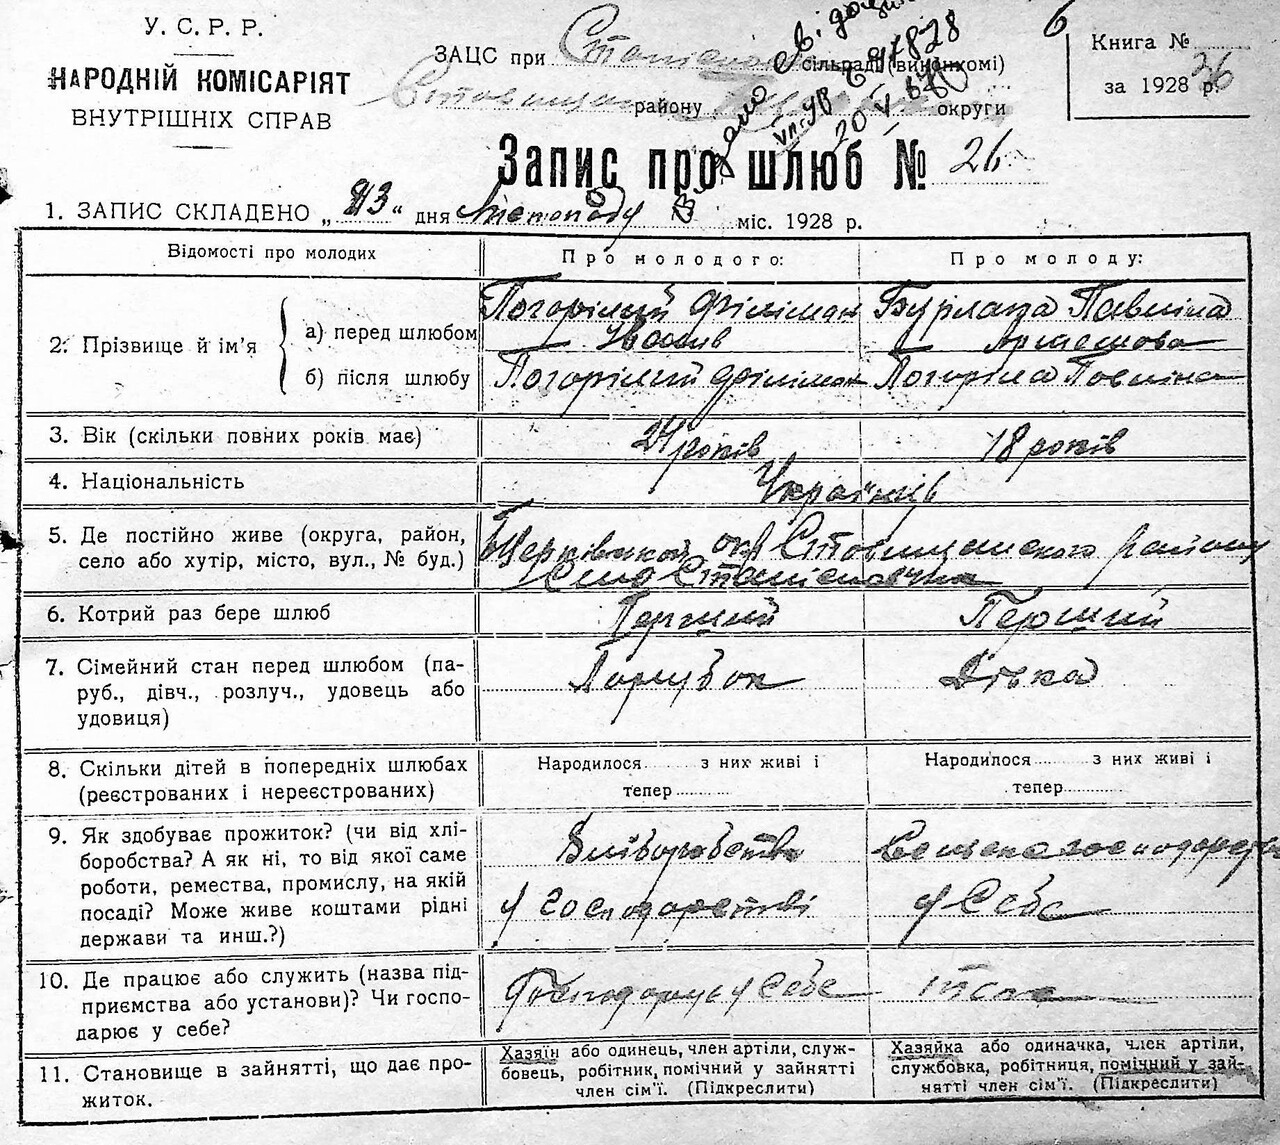 У. С. Р. Р.
НАРОДНІЙ КОМІСАРІЯТ
ВНУТРІШНІХ СПРАВ
ЗАЦС при сільраді (виконкомі)
району округи
Книга №
за 1928 р.
36
6
Запис про шлюб № 26
1. ЗАПИС СКЛАДЕНО „ 13 “ дня Листопаду міс. 1928 р.
Відомості про молодих
Про молодого:
Про молоду:
2. Прізвище й ім’я
а) перед шлюбом
Погорілий Філімон
Іванів
Бурлака Павліна
Артемова
б) після шлюбу
Погорілий Філімон
Погоріла Павліна
3. Вік (скільки повних років має)
24 років
18 років
4. Національність
Українців
5. Де постійно живе (округа, район,
село або хутір, місто, вул., № буд.)
окр Ставищанского району
Село Станіславчик
6. Котрий раз бере шлюб
Перший
Перший
7. Сімейний стан перед шлюбом (па-
руб., дівч., розлуч., удовець або
удовиця)
Парубок
Дівка
8. Скільки дітей в попередніх шлюбах
(реєстрованих і нереєстрованих)
Народилося з них живі і
тепер
Народилося з них живі і
тепер
9. Як здобуває прожиток? (чи від хлі-
боробства? А як ні, то від якої саме
роботи, ремества, промислу, на якій
посаді? Може живе коштами рідні
держави та инш.?)
у господарстві
у Себе
10. Де працює або служить (назва під-
приємства або установи)? Чи госпо-
дарює у себе?
Господарує у Себе
11. Становище в зайнятті, що дає про-
житок.
Хазяїн або одинець, член артіли, служ-
бовець, робітник, помічний у зайнятті
член сім’ї. (Підкреслити)
Хазяйка або одиначка, член артіли,
службовка, робітниця, помічний у зай-
нятті член сім’ї. (Підкреслити)